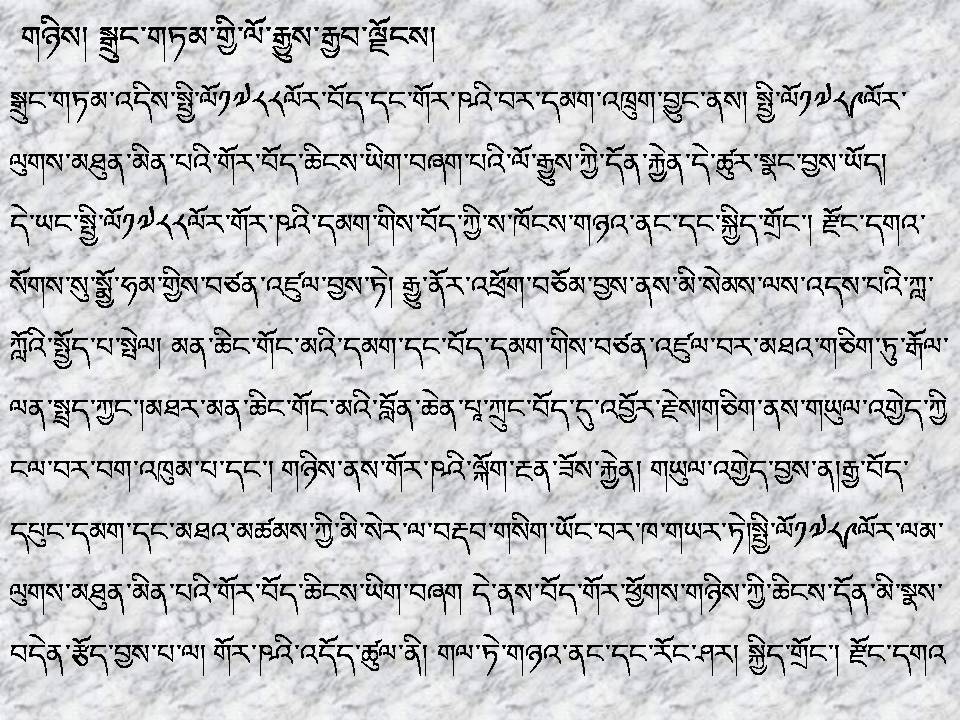 གཉིས། སྒྲུང་གཏམ་གྱི་ལོ་རྒྱུས་རྒྱབ་ལྗོངས།
སྒྲུང་གཏམ་འདིས་སྤྱི་ལོ༡༧༨༨ལོར་བོད་དང་གོར་ཁའི་བར་དམག་འཁྲུག་བྱུང་ནས། སྤྱི་ལོ༡༧༨༩ལོར་
ལུགས་མཐུན་མིན་པའི་གོར་བོད་ཆིངས་ཡིག་བཞག་པའི་ལོ་རྒྱུས་ཀྱི་དོན་རྐྱེན་དེ་ཚུར་སྣང་བྱས་ཡོད།
དེ་ཡང་སྤྱི་ལོ༡༧༨༨ལོར་གོར་ཁའི་དམག་གིས་བོད་ཀྱི་ས་ཁོངས་གཉའ་ནང་དང་སྐྱིད་གྲོང་། རྫོང་དགའ་
སོགས་སུ་སྨྱོ་ཧམ་གྱིས་བཙན་འཛུལ་བྱས་ཏེ། རྒྱུ་ནོར་འཕྲོག་བཅོམ་བྱས་ནས་མི་སེམས་ལས་འདས་པའི་ཀླ་
ཀློའི་སྤྱོད་པ་སྤེལ། མན་ཆིང་གོང་མའི་དམག་དང་བོད་དམག་གིས་བཙན་འཛུལ་བར་མཐའ་གཅིག་ཏུ་རྒོལ་
ལན་སྤྲད་ཀྱང་།མཐར་མན་ཆིང་གོང་མའི་བློན་ཆེན་པཱ་ཀྲུང་བོད་དུ་འབྱོར་རྗེས།གཅིག་ནས་གཡུལ་འགྱེད་ཀྱི
ངལ་བར་བག་འཁུམ་པ་དང་། གཉིས་ནས་གོར་ཁའི་ལྐོག་རྔན་ཟོས་རྐྱེན། གཡུལ་འགྱེད་བྱས་ན།རྒྱ་བོད་
དཔུང་དམག་དང་མཐའ་མཚམས་ཀྱི་མི་སེར་ལ་བརྡབ་གསིག་ཡོང་བར་ཁ་གཡར་ཏེ།སྤྱི་ལོ༡༧༨༩ལོར་ལམ་
ལུགས་མཐུན་མིན་པའི་གོར་བོད་ཆིངས་ཡིག་བཞག དེ་ནས་བོད་གོར་ཕྱོགས་གཉིས་ཀྱི་ཆིངས་དོན་མི་སྣས་
བདེན་རྩོད་བྱས་པ་ལ། གོར་ཁའི་འདོད་ཚུལ་ནི། གལ་ཏེ་གཉའ་ནང་དང་རོང་ཤར། སྐྱིད་གྲོང་། རྫོང་དགའ